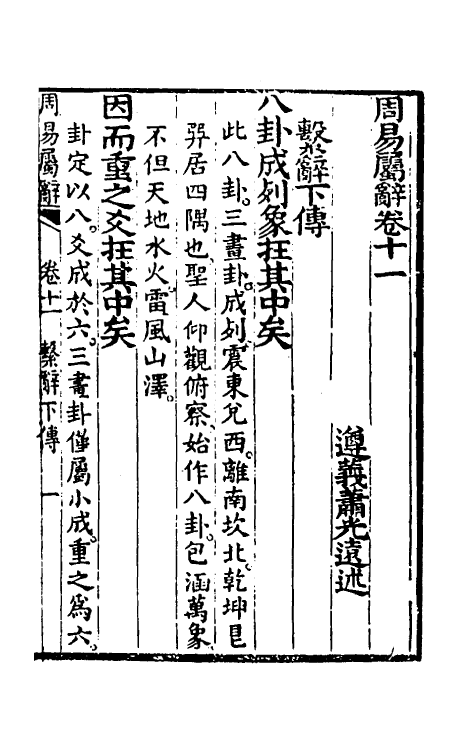 周易屬辭卷十一
遵義蕭光遠述
繫辭下傳
八卦成列象在其中矣
此八卦。三畫卦。成列。震東兌西。離南坎北。乾坤艮
巽居四隅也。聖人仰觀俯察。始作八卦。包涵萬象。
不但天地水火。雷風山澤。
因而重之爻在其中矣
卦定以八。爻成於六。三畫卦僅屬小成。重之為六。
周易屬辭 卷十一 繫辭下傳 一